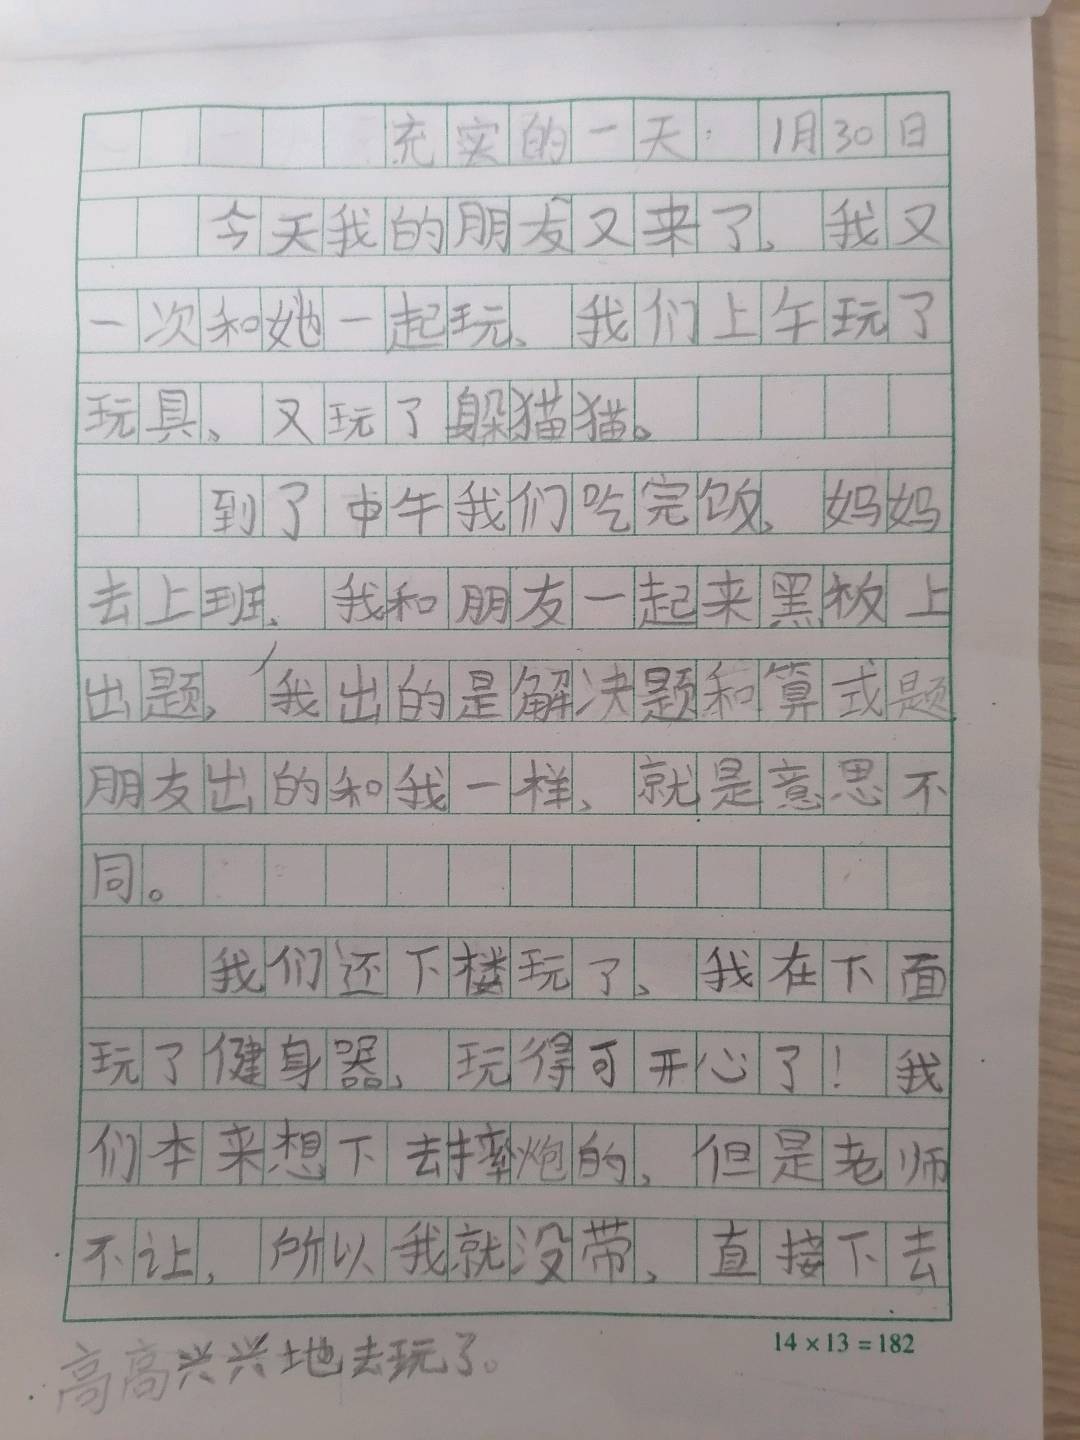 充实的一天 1月30日
今天我的朋友又来了，我又
一次和她一起玩、我们上午玩了
玩具、又玩了躲猫猫。
到了中午我们吃完饭，妈妈
去上班，我和朋友一起来黑板上
出题，我出的是解决题和算式题
朋友出的和我一样、就是意思不
同。
我们还下楼玩了、我在下面
玩了健身器，玩得可开心了！我
们本来想下去摔炮的，但是老师
不让，所以我就没带，直接下去
高高兴兴地去玩了。
14×13=182